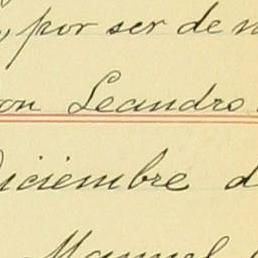 , por ser de
on Leandro
Diciembre d
Manuel